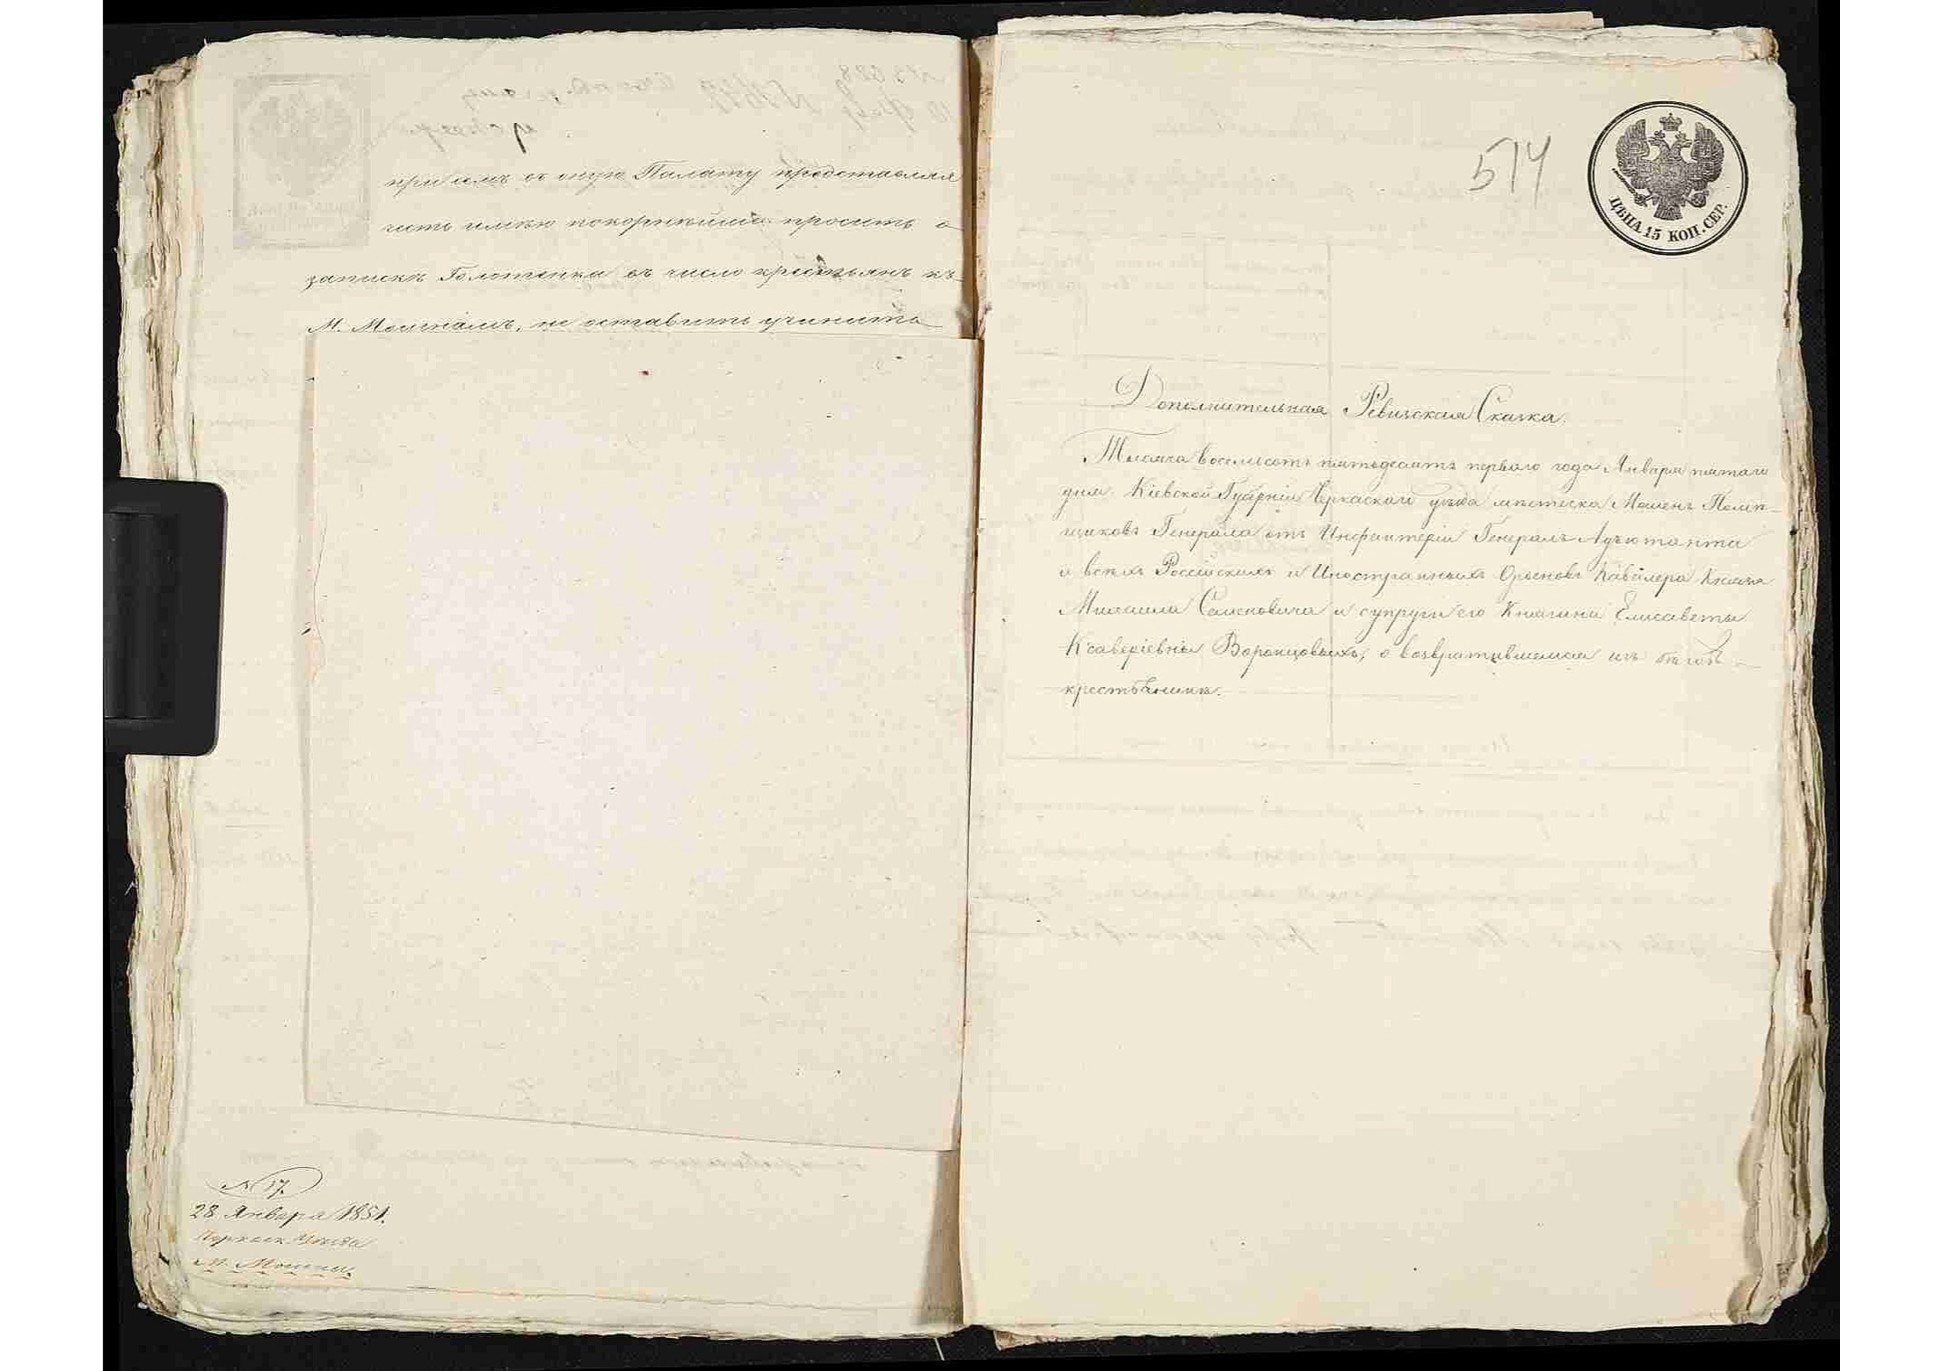 при семъ въ оную Палату представляя
честь имѣю покорнѣйше просить о
запискѣ Голотенки въ число крестьянъ къ
М. Мошнамъ, не оставить учинить
№ 17.
28 Января 1851.
Черкаск. Уѣзда
М. Мошны.
514
ЦѢНА 15 КОП. СЕР.
Дополнительная Ревизская Сказка.
Тысяча восемьсотъ пятьдесятъ перваго года Января пятаго
дня Кіевской Губерніи Черкаскаго уѣзда мѣстечка Мошенъ Помѣ-
щиковъ Генерала отъ Инфантеріи Генералъ-Адъютанта
и всѣхъ Россійскихъ и Иностранныхъ Орденовъ Кавалера Князя
Михаила Семеновича и супруги его Княгини Елисаветы
Ксаверіевны Воронцовыхъ, о возвратившемся изъ бѣговъ
крестьянинѣ.